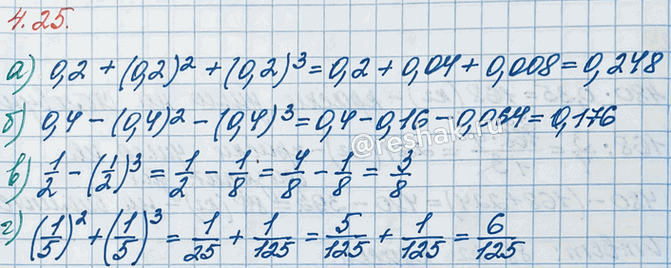 4.25.
а) 0,2 + (0,2)² + (0,2)³ = 0,2 + 0,04 + 0,008 = 0,248
б) 0,4 - (0,4)² - (0,4)³ = 0,4 - 0,16 - 0,054 = 0,176
в) 1/2 - (1/2)³ = 1/2 - 1/8 = 4/8 - 1/8 = 3/8
г) (1/5)² + (1/5)³ = 1/25 + 1/125 = 5/125 + 1/125 = 6/125
@reshak.ru